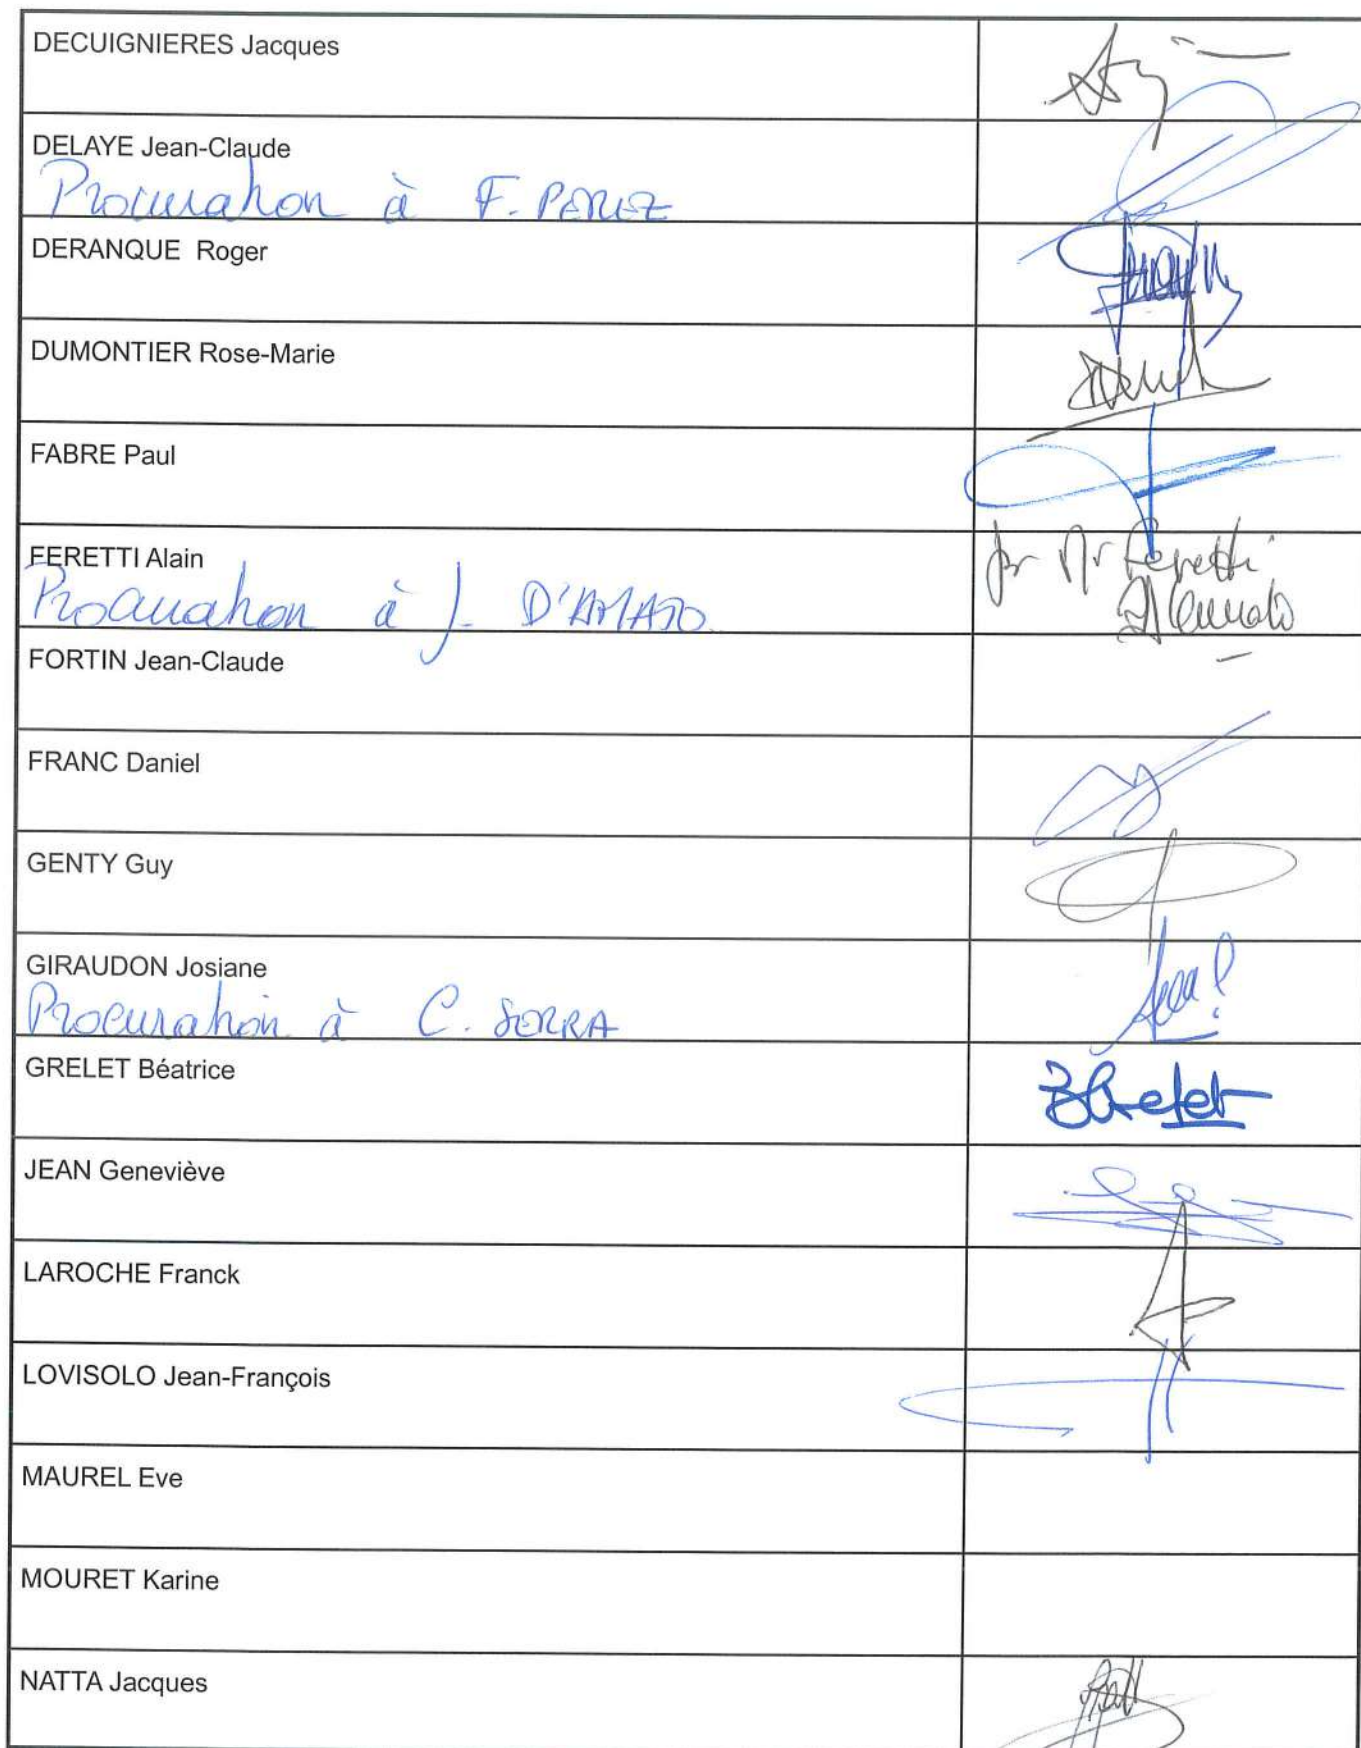 DECUIGNIERES Jacques
DELAYE Jean-Claude
Procuration à F. PEREZ
DERANQUE Roger
DUMONTIER Rose-Marie
FABRE Paul
FERETTI Alain
pr Mr Feretti
Procuration à J. D'AMATO
FORTIN Jean-Claude
FRANC Daniel
GENTY Guy
GIRAUDON Josiane
Procuration à C. SERRA
GRELET Béatrice
BGrelet
JEAN Geneviève
LAROCHE Franck
LOVISOLO Jean-François
MAUREL Eve
MOURET Karine
NATTA Jacques